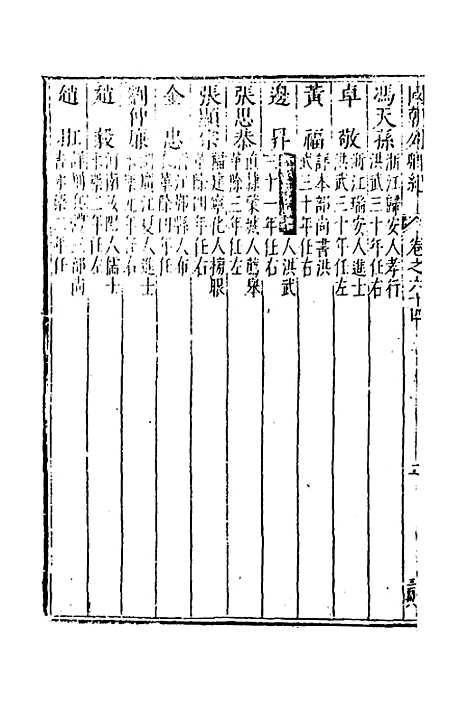 國朝列卿紀 卷之六十四
馮天孫 浙江歸安人孝行
洪武三十年任右
卓敬 浙江瑞安人進士
洪武三十年任左
黃福 詳本部尚書洪
武三十年任右
邊昇 人洪武
三十一年任右
張思恭 直隸 人薦舉
革除三年任左
張顯宗 福建寧化人榜眼
革除四年任右
金忠 浙江鄞縣人布
革除四年任
劉仲廉 江夏人進士
元年任右
趙毅 河南 人儒士
永樂二年任左
趙羾 詳刑兵禮三部尚
書永樂 年任